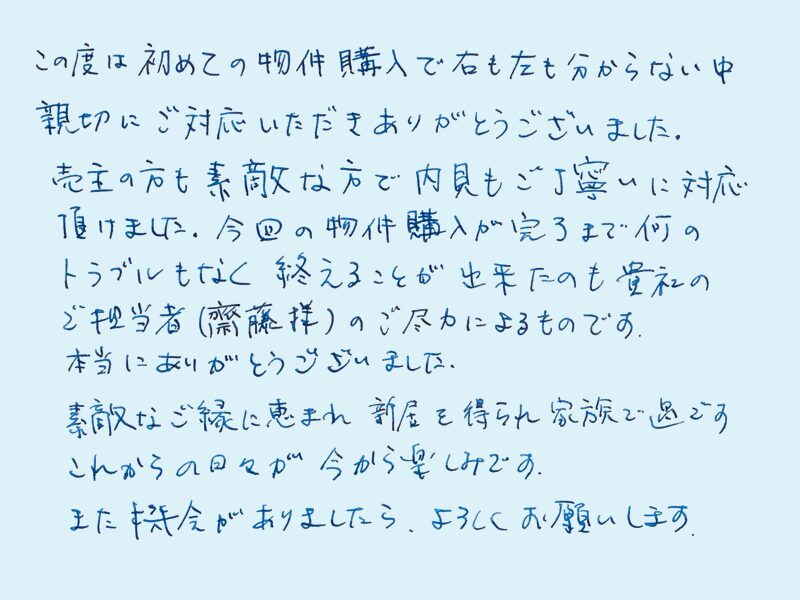 この度は初めての物件購入で右も左も分からない中
親切にご対応いただきありがとうございました.
売主の方も素敵な方で内見もご丁寧いに対応
頂けました.今回の物件購入が完了まで何の
トラブルもなく終えることが出来たのも貴社の
ご担当者(齋藤様)のご尽力によるものです.
本当にありがとうございました.
素敵なご縁に恵まれ新居を得られ家族で過ごす
これからの日々が今から楽しみです.
また機会がありましたら、よろしくお願いします.